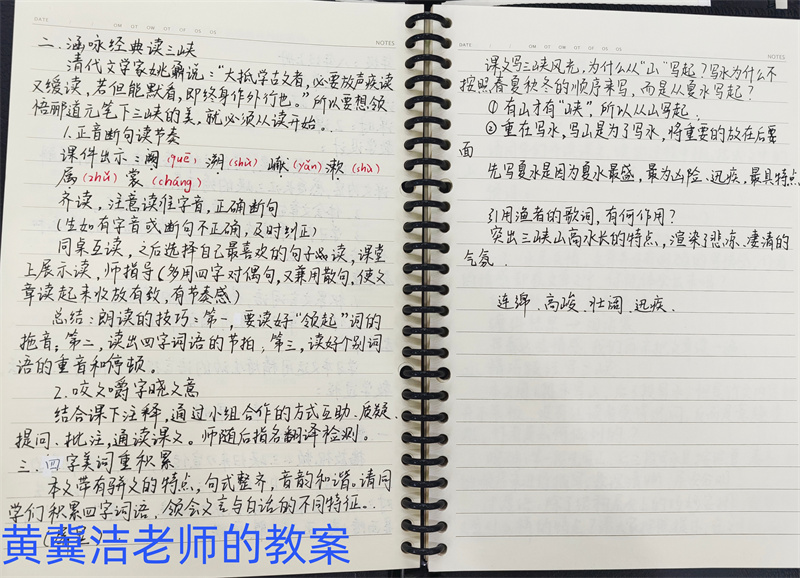 DATE
NOTES
二.涵咏经典读三峡
清代文学家姚鼐说:“大抵学古文者,必要放声疾读
又缓读,若但能默看,即终身作外行也。”所以要想领
悟郦道元笔下三峡的美,就必须从读开始。
1.正音断句读节奏
课件出示:阙(quē) 溯(sù) (yǎn) 漱(shù)
属(zhǔ) (cháng)
齐读,注意读准字音,正确断句
(生如有字音或断句不正确,及时纠正)
同桌互读,之后选择自己最喜欢的句子读,课堂
上展示读,师指导(多用四字对偶句,又兼用散句,使文
章读起来收放有致,有节奏感)
总结:朗读的技巧:第一,要读好“领起”词的
拖音,第二,读出四字词语的节拍,第三,读好个别词
语的重音和停顿。
2.咬文嚼字晓文意
结合课下注释,通过小组合作的方式互助、质疑、
提问、批注,通读课文。师随后指名翻译检测。
三.四字美词重积累
本文带有骈文的特点,句式整齐,音韵和谐。请同
学们积累四字词语,领会文言与白话的不同特征。
黄冀洁老师的教案
DATE
NOTES
课文写三峡风光,为什么从“山”写起?写水为什么不
按照春夏秋冬的顺序来写,而是从夏水写起?
①有山才有“峡”,所以从山写起.
②重在写水,写山是为了写水,将重要的放在后面
先写夏水是因为夏水最盛,最为凶险、迅疾、最具特点
引用渔者的歌词,有何作用?
突出三峡山高水长的特点,渲染了悲凉、凄清的
气氛.
连绵、高峻、壮阔、迅疾.